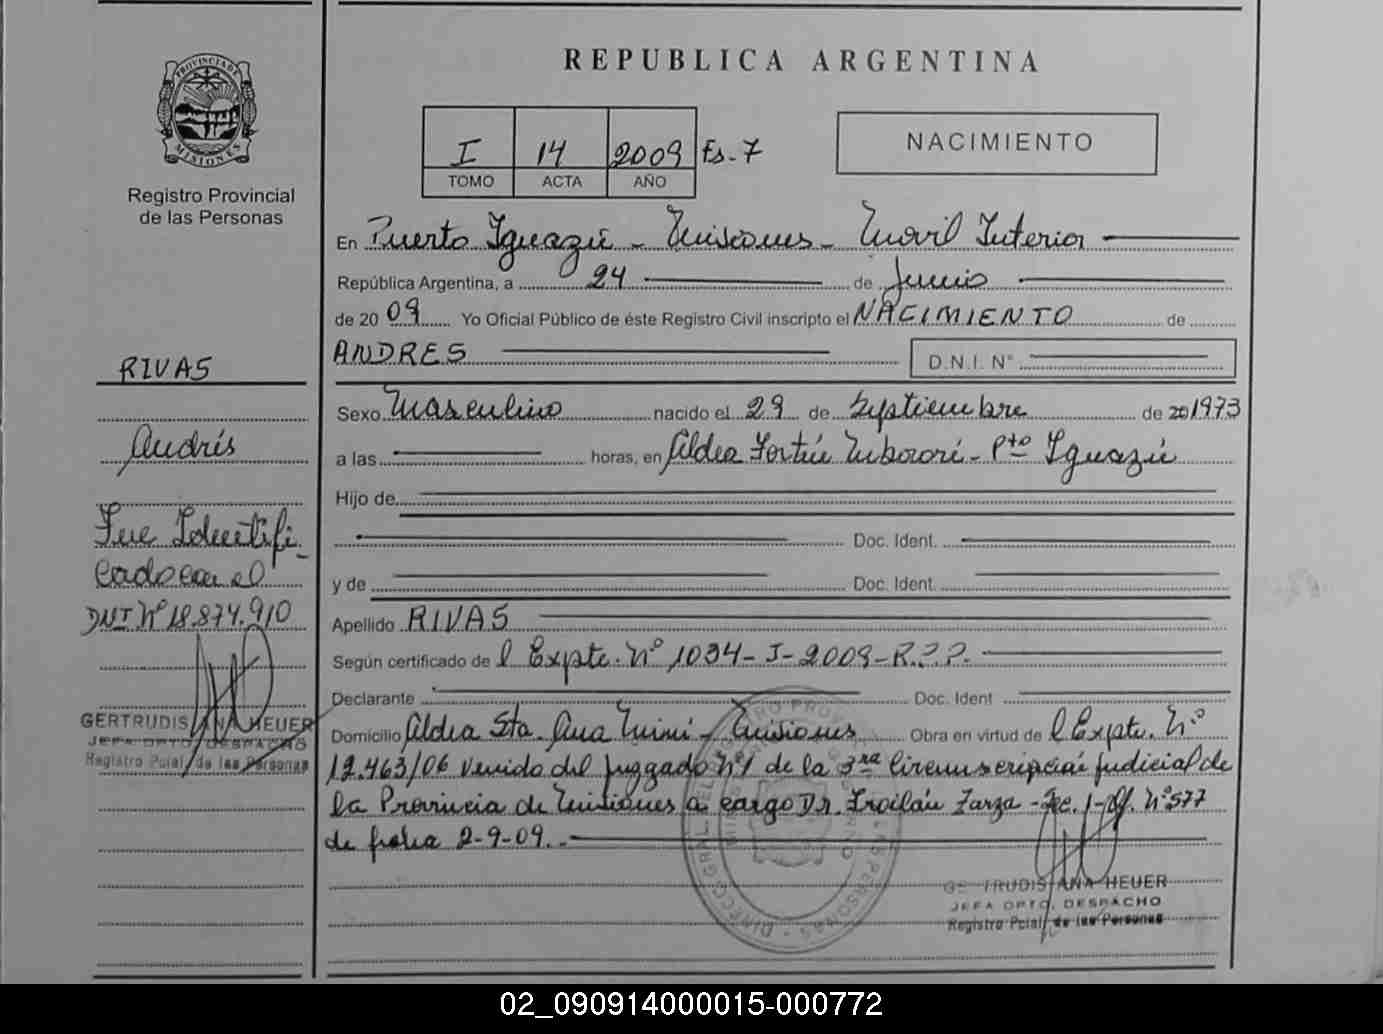 PROVINCIA DE
MISIONES
Registro Provincial
de las Personas
RIVAS
Andrés
Fue Identifi-
cado con el
DNI Nº 18.874.910
GERTRUDIS ANA HEUER
JEFA DPTO. DESPACHO
Registro Pcial. de las Personas
REPUBLICA ARGENTINA
I 14 2009 Es-7
TOMO ACTA AÑO
NACIMIENTO
En Puerto Iguazú - Misiones - Movil Interior
República Argentina, a 24 de Junio
de 20 09 Yo Oficial Público de éste Registro Civil inscripto el NACIMIENTO de
ANDRES D.N.I. Nº
Sexo Masculino nacido el 29 de Septiembre de 20 1973
a las horas, en Aldea Fortín Mbororé - Pto Iguazú
Hijo de
Doc. Ident.
y de Doc. Ident.
Apellido RIVAS
Según certificado de l Expte. Nº 1034-I-2009-R.P.P.
Declarante Doc. Ident
Domicilio Aldea Sta. Ana Miní - Misiones Obra en virtud de l Expte. Nº
12.463/06 venido del juzgado Nº1 de la 3ra Circunscripción judicial de
la Provincia de Misiones a cargo Dr. Froilán Zarza - Sec. 1 - Of. Nº 577
de fecha 2-9-09.
GERTRUDIS ANA HEUER
JEFA DPTO. DESPACHO
Registro Pcial. de las Personas
02_090914000015-000772